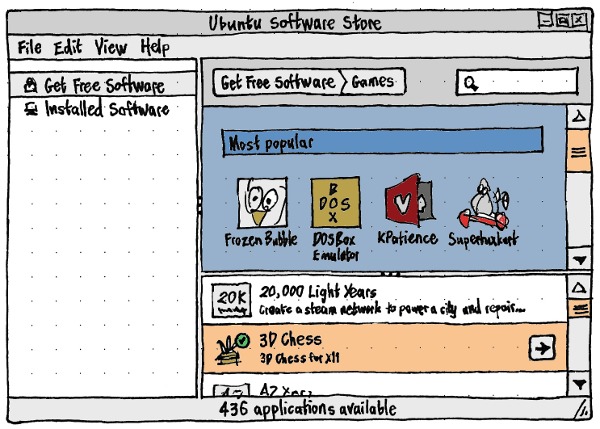 Ubuntu Software Store
File Edit View Help
Get Free Software
Installed Software
Get Free Software Games
Most popular
Frozen Bubble
DOSBox
Emulator
KPatience
Supertuxkart
B
DOS
X
20K
20,000 Light Years
Create a steam network to power a city and repair...
3D Chess
3D Chess for X11
436 applications available